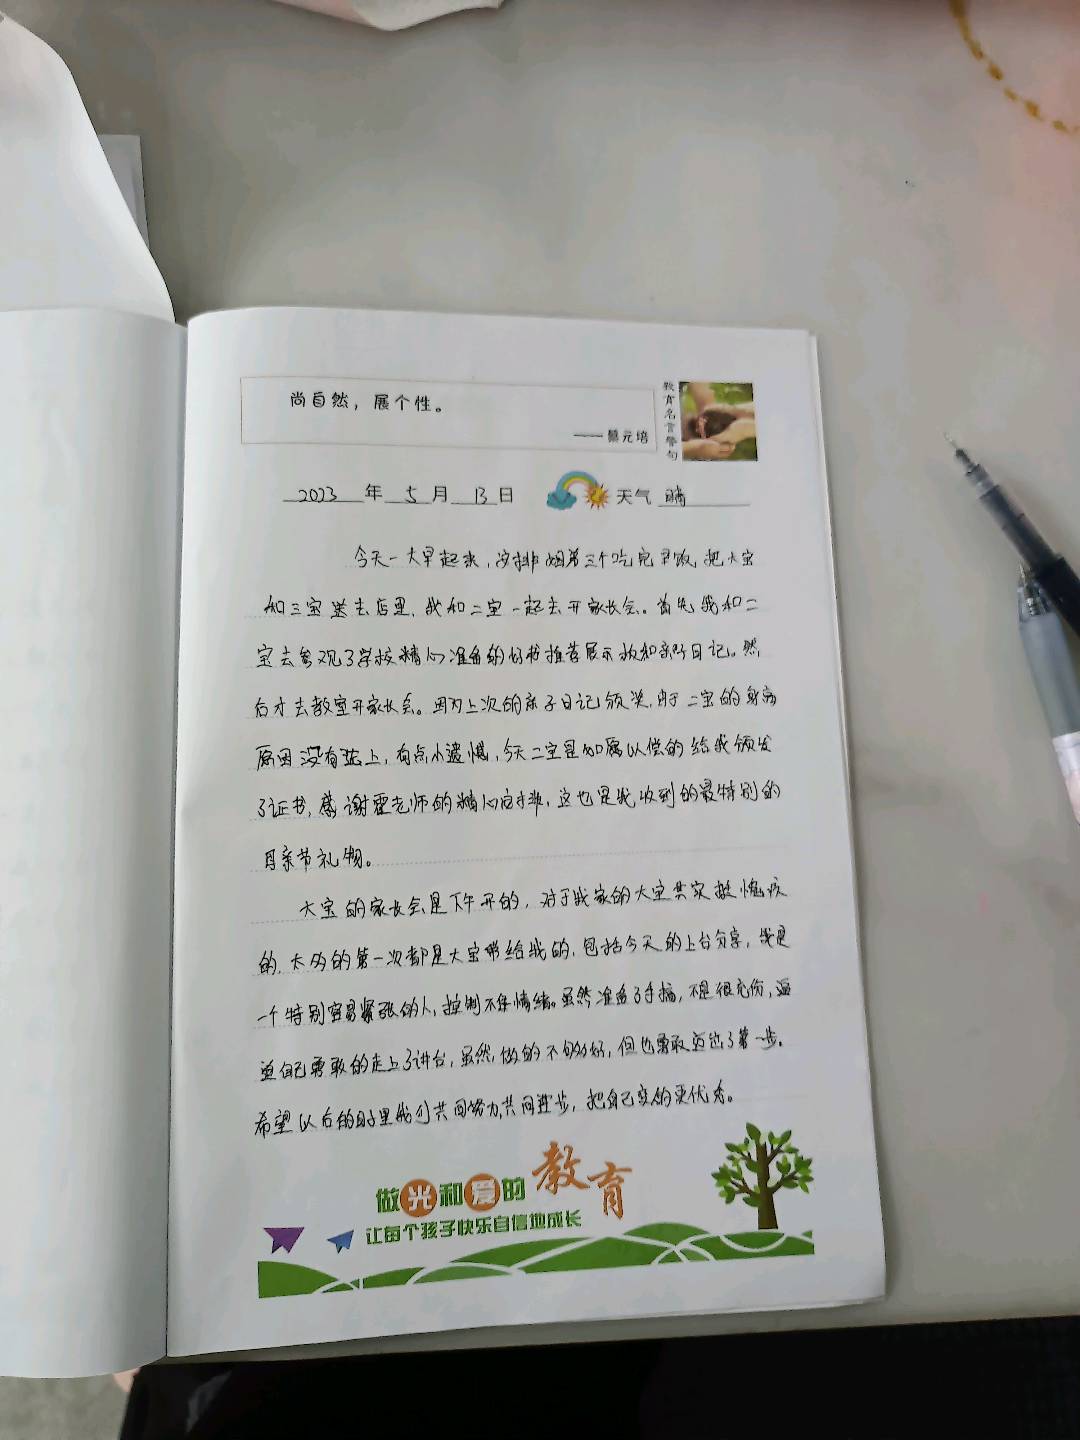 尚自然，展个性。
——蔡元培
教育名言警句
2023 年 5 月 13 日 天气 晴
今天一大早起来，安排姐弟三个吃完早饭，把大宝
和三宝送去店里，我和二宝一起去开家长会。首先我和二
宝去参观了学校精心准备的好书推荐展示板和亲子日记。然
后才去教室开家长会。因为上次的亲子日记颁奖，由于二宝的身体
原因没有赶上，有点小遗憾，今天二宝是如愿以偿的给我颁发
了证书，感谢霍老师的精心安排，这也是我收到的最特别的
母亲节礼物。
大宝的家长会是下午开的，对于我家的大宝其实挺愧疚
的，太多的第一次都是大宝带给我的，包括今天的上台分享，我是
一个特别容易紧张的人，控制不住情绪。虽然准备了手稿，不是很充份，逼
迫自己勇敢的走上了讲台，虽然做的不够好，但也勇敢迈出了第一步。
希望以后的日子里我们共同努力，共同进步，把自己变的更优秀。
做光和爱的教育
让每个孩子快乐自信地成长